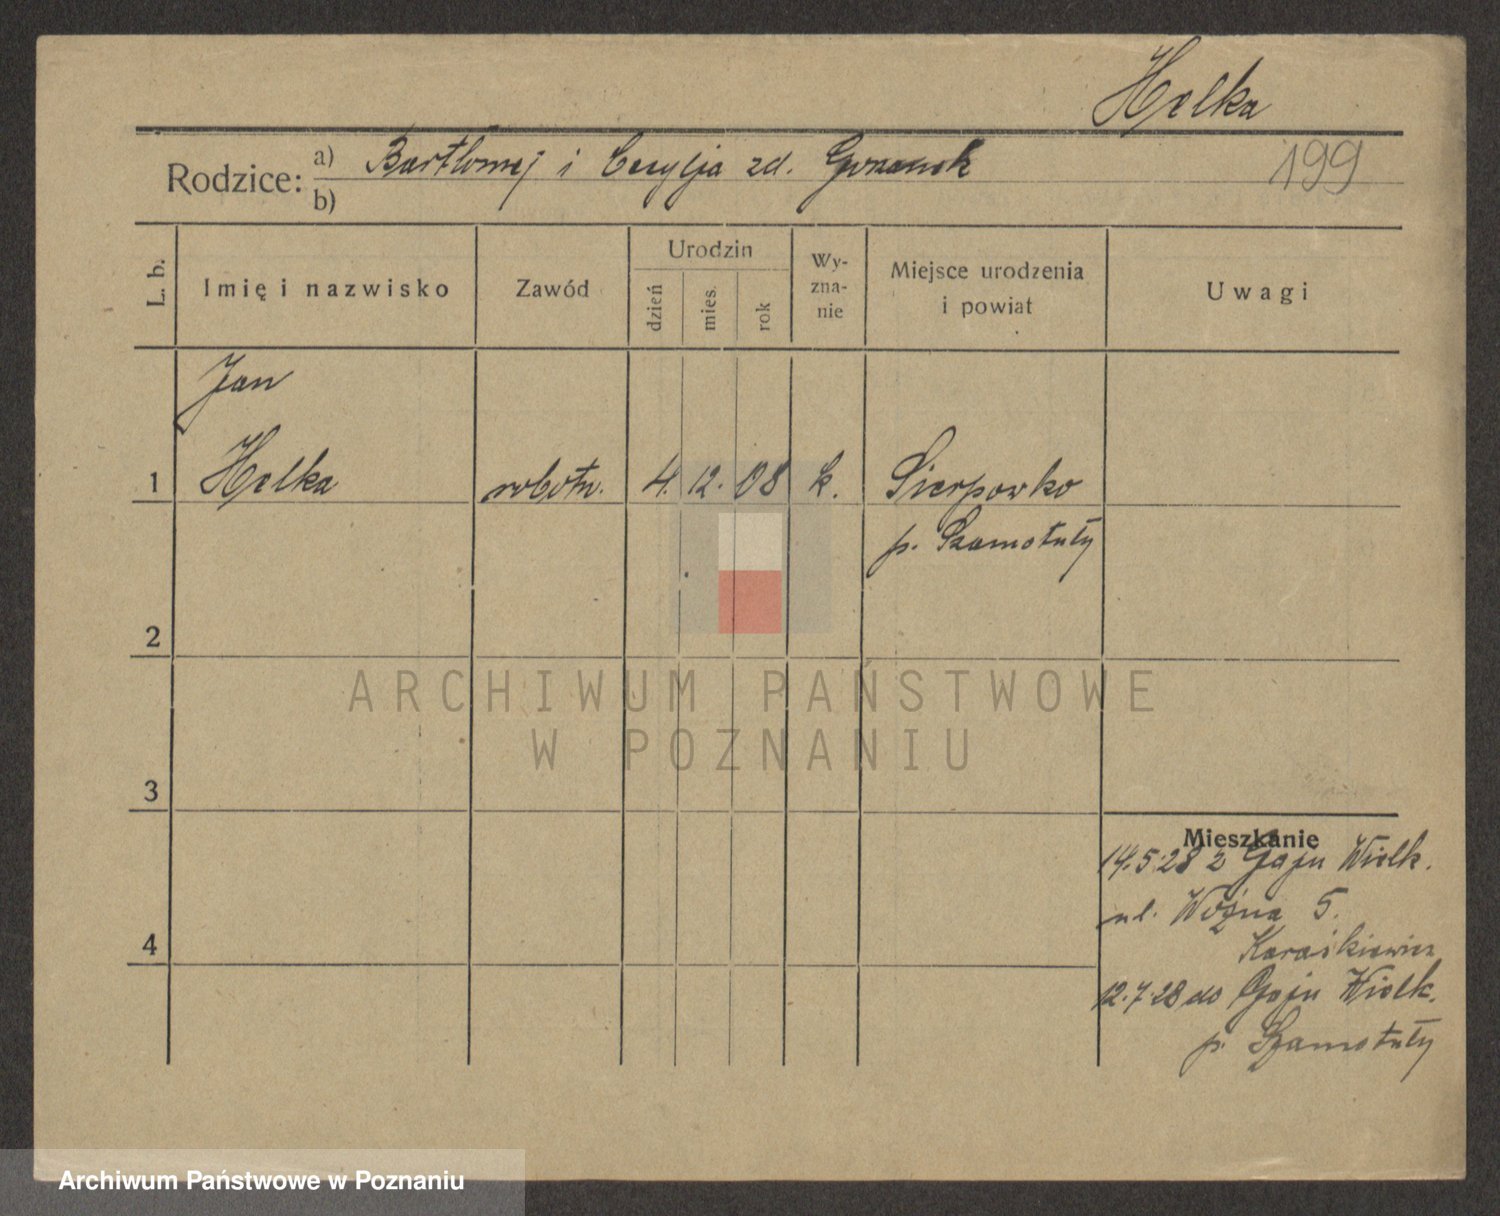 Helka
Rodzice: a) Bartłomej i Cecylja zd.
b)
199
L. b.
Imię i nazwisko
Zawód
Urodzin
dzień
mies.
rok
Wy-
zna-
nie
Miejsce urodzenia
i powiat
Uwagi
Jan
1 Helka robotn. 4. 12. 08 k. Sierpowko
p. Szamotuły
2
3
4
Mieszkanie
14.5.28 z Gaju Wielk.
ul. Woźna 5.
Karaśkiewicz
12.7.28 do Gaju Wielk.
p. Szamotuły
ARCHIWUM PAŃSTWOWE
W POZNANIU
Archiwum Państwowe w Poznaniu